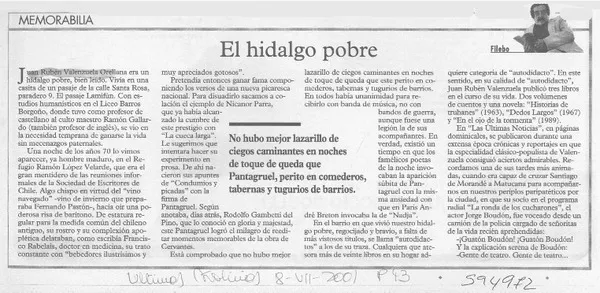 MEMORABILIA
Filebo
El hidalgo pobre
Juan Rubén Valenzuela Orellana era un
hidalgo pobre, bien leído. Vivía en una
casita de un pasaje de la calle Santa Rosa,
paradero 9. El pasaje Lamifún. Con es-
tudios humanísticos en el Liceo Barros
Borgoño, donde tuvo como profesor de
castellano al culto maestro Ramón Gallar-
do (también profesor de inglés), se vio en
la necesidad temprana de ganarse la vida
sin mecenazgos paternales.
Una noche de los años 70 lo vimos
aparecer, ya hombre maduro, en el Re-
fugio Ramón López Velarde, que era el
gran mentidero de las reuniones infor-
males de la Sociedad de Escritores de
Chile. Algo chispo en virtud del "vino
navegado" -vino de invierno que prepa-
raba Fernando Pastén-, hacía oír una po-
derosa risa de barítono. De estatura re-
gular para la medida común del chileno
antiguo, su rostro y su complexión apo-
plética delataban, como escribía Francis-
co Rabelais, doctor en medicina, su trato
constante con "bebedores ilustrísimos y
muy apreciados gotosos".
Pretendía entonces ganar fama compo-
niendo los versos de una nueva picaresca
nacional. Para disuadirlo sacamos a co-
lación el ejemplo de Nicanor Parra, que
ya había alcanzado
la cumbre de este
prestigio con
"La cueca larga".
Le sugerimos que
intentara hacer
su experimento en
prosa. De ahí na-
cieron sus apuntes
de "Condumios y
cazadas" con la
firma de
Pantagruel. Según
anotaba, días atrás, Rodolfo Gambetti del
Pino, que lo conoció en gloria y majestad,
este Pantagruel logró el milagro de reedi-
tar momentos memorables de la obra de
Cervantes.
Está comprobado que no hubo mejor
No hubo mejor lazarillo de
ciegos caminantes en noches
de toque de queda que
Pantagruel, perito en comederos,
tabernas y tugurios de barrios.
lazarillo de ciegos caminantes en noches
de toque de queda que este perito en co-
mederos, tabernas y tugurios de barrios.
En todos había unanimidad para re-
cibirlo con banda de música, no con
bandos de guerra,
aunque fuese una
legión la de sus
acompañantes. En
verdad, existió un
tiempo en que los
famélicos poetas
de la noche invo-
caban la aparición
súbita de Pan-
tagruel con la mis-
ma ansiedad con
que en París An-
dré Breton invocaba la de "Nadja".
En el barrio en que vivió nuestro hidal-
go pobre, regocijado y bravío, a falta de
más vistosos títulos, se llama "autodidac-
tos" a los de su traza. Cualquiera que ate-
sora más de veinte libros en su hogar ad-
quiere categoría de "autodidacto". En este
sentido, en su calidad de "autodidacto",
Juan Rubén Valenzuela publicó tres libros
en el curso de su vida. Dos volúmenes
de cuentos y una novela: "Historias de
truhanes" (1963), "Dedos Largos" (1967)
y "En el ojo de la tormenta" (1989).
En "Las Últimas Noticias", en páginas
dominicales, se publicaron durante una
extensa época crónicas y reportajes en que
la especialidad clásico-populista de Valen-
zuela consiguió aciertos admirables. Re-
cordamos una de sus tardes más anima-
das, cuando era capaz de cruzar Santiago
de Morandé a Matucana para acompañar-
nos en nuestros periplos peripatéticos por
la ciudad, en que su socio en el programa
radial "La ronda de los cucharones", el ac-
tor Jorge Boudón, fue voceado desde un
camión de la policía cargado de señoritas
de la vida recién aprehendidas:
-¡Guatón Boudón! ¡Guatón Boudón!
Y la explicación serena de Boudón:
-Gente de teatro. Gente de teatro...
Últimas Noticias 8-VII-2001 P 43
594972